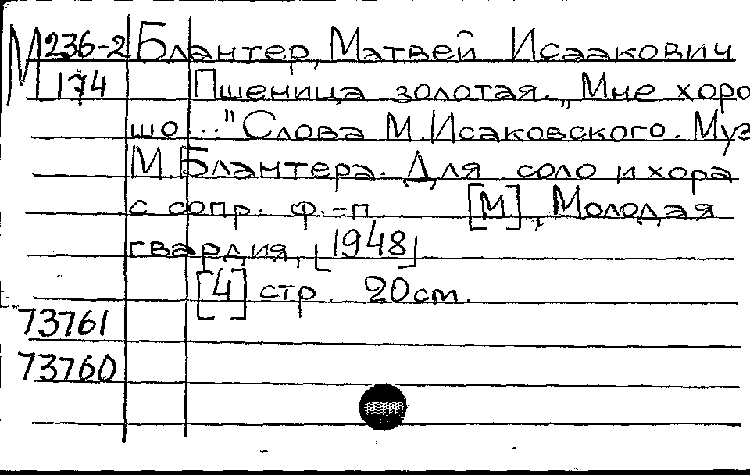 М 236-2 Блантер, Матвей Исаакович
174 Пшеница золотая. „Мне хоро
шо..." Слова М. Исаковского. Муз
М. Блантера. Для соло и хора
с сопр. ф.-п [М], Молодая
гвардия, [1948]
[4] стр. 20 cm.
73761
73760